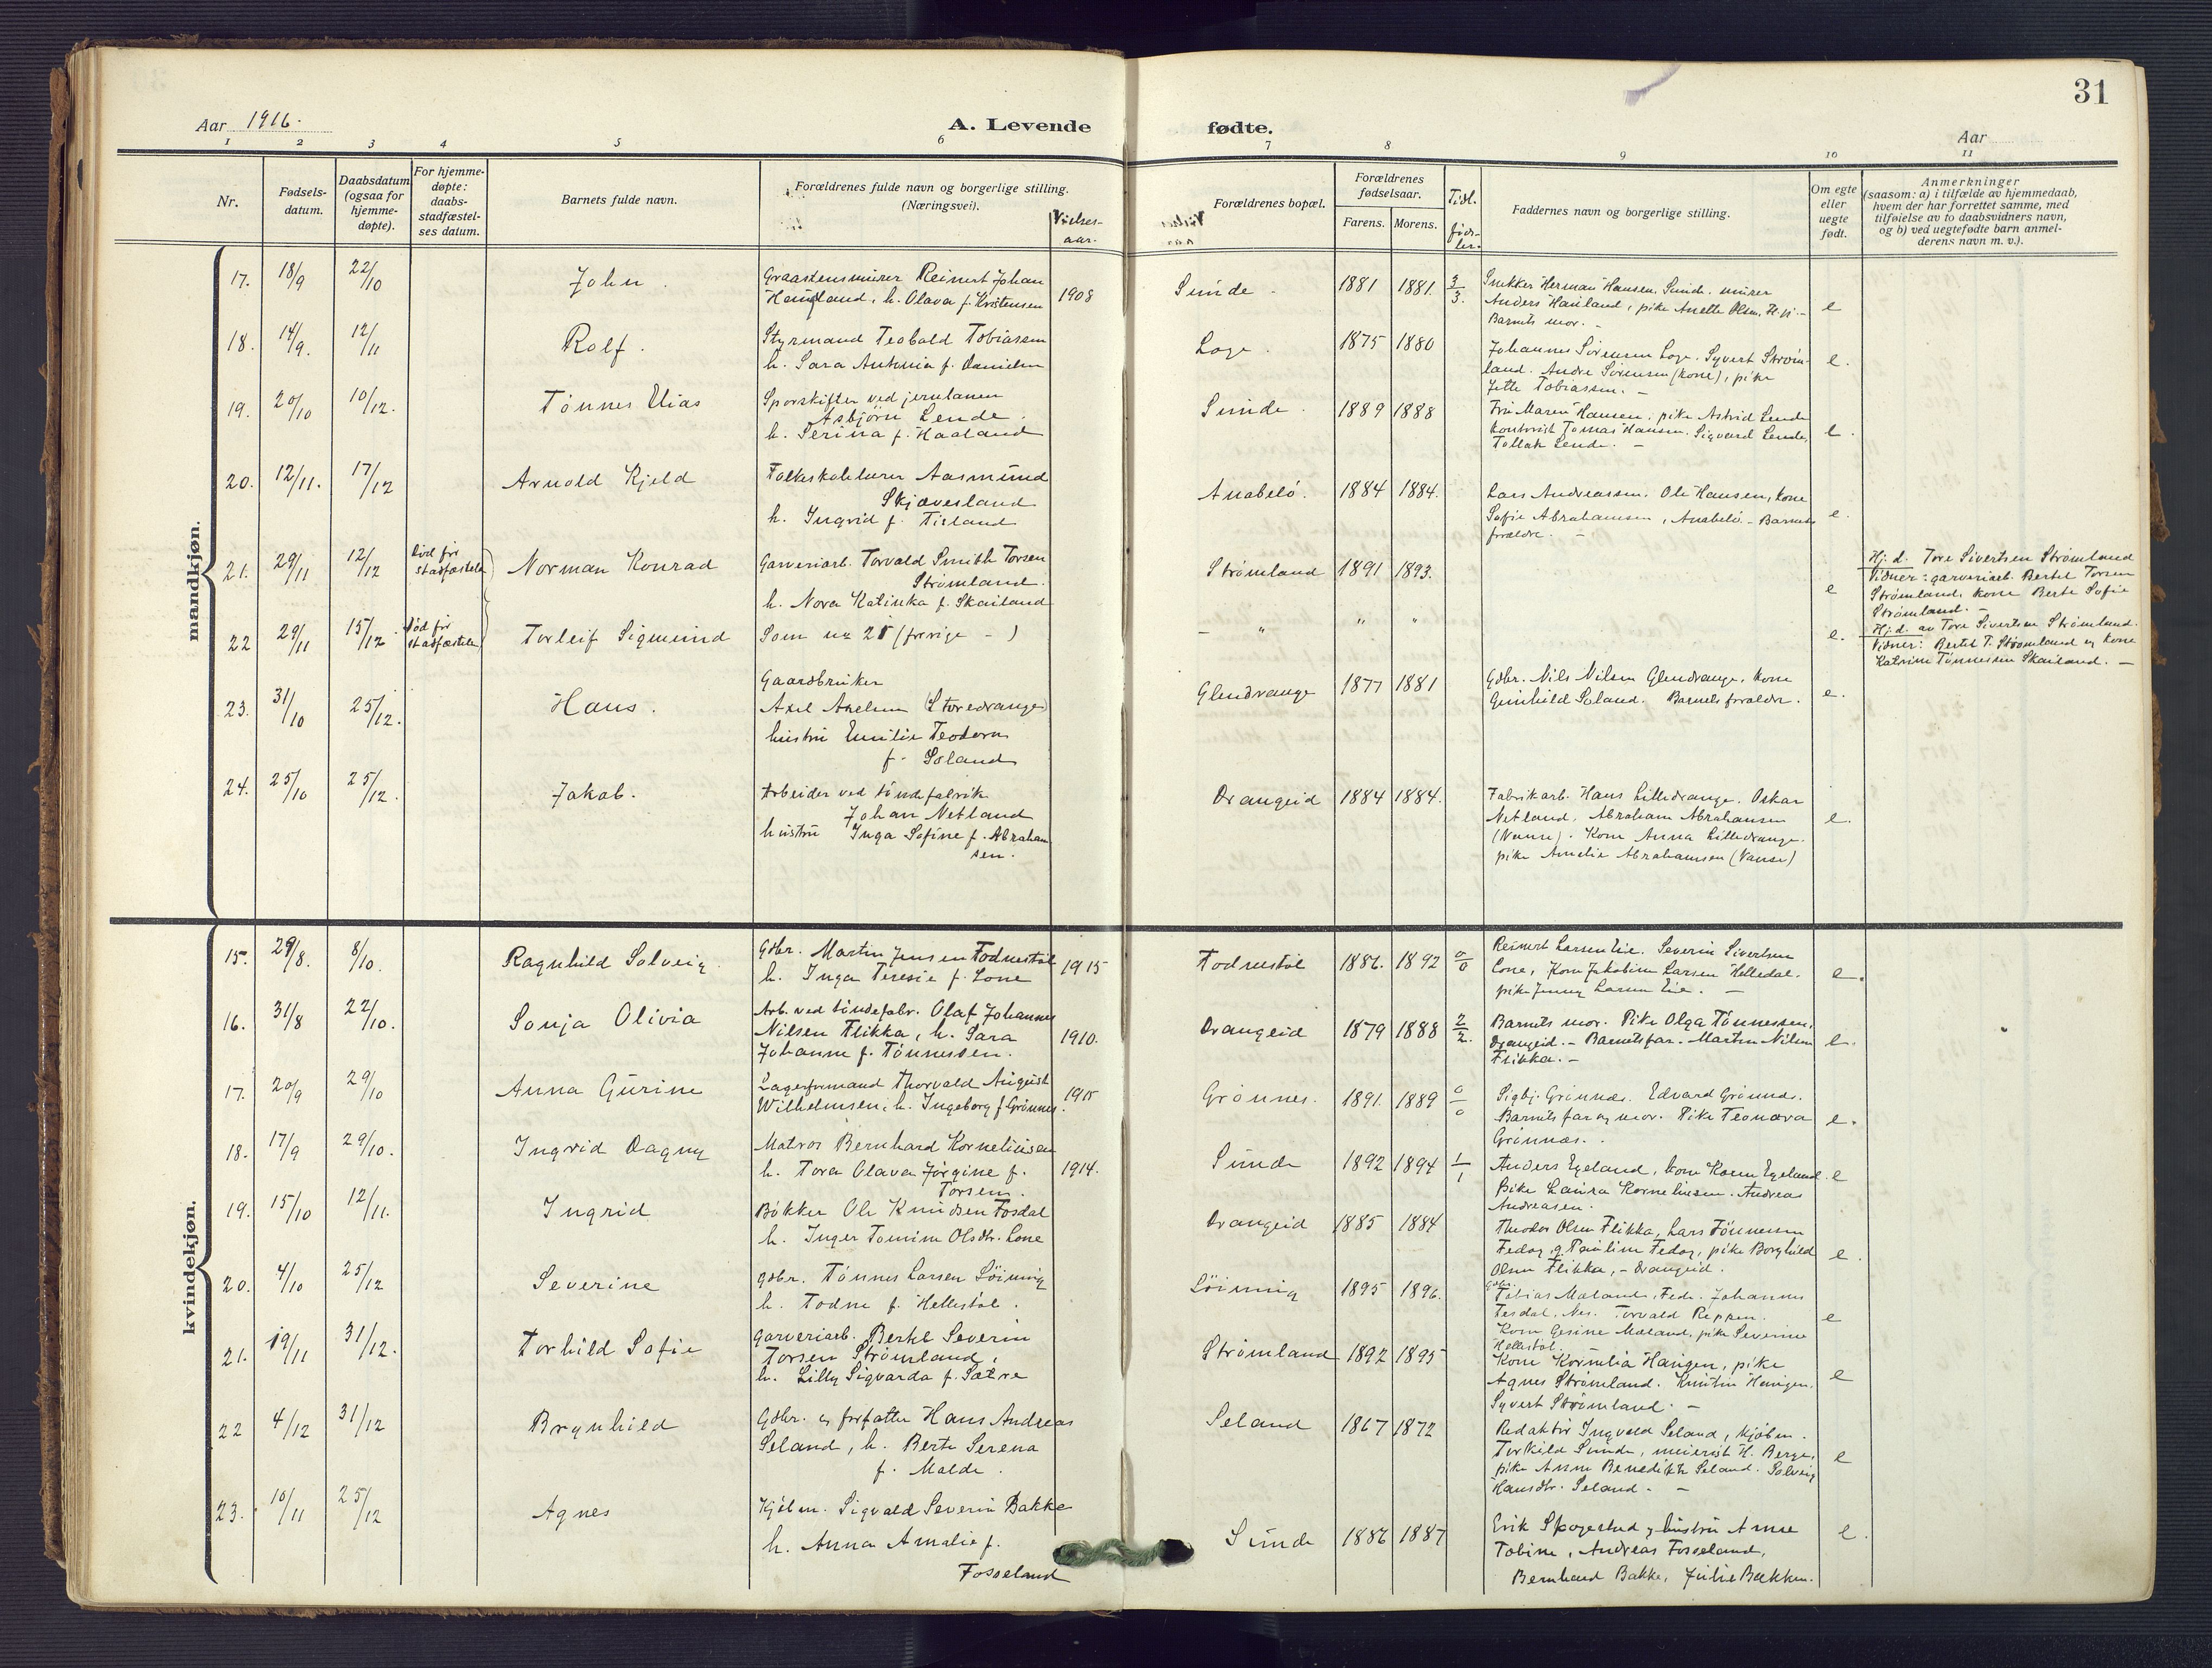 31
Aar 1916.
A. Levende fødte.
Aar
1 2 3 4 5 6 7 8 9 10 11
Nr.
Fødsels-
datum.
Daabsdatum
(ogsaa for
hjemme-
døpte).
For hjemme-
døpte:
daabs-
stadfæstel-
ses datum.
Barnets fulde navn.
Forældrenes fulde navn og borgerlige stilling.
(Næringsvei).
Vielses-
aar.
Forældrenes bopæl.
Forældrenes
fødselsaar.
Farens. Morens.
Tidl.
føds-
ler.
Faddernes navn og borgerlige stilling.
Om egte
eller
uegte
født.
Anmerkninger
(saasom: a) i tilfælde av hjemmedaab,
hvem der har forrettet samme, med
tilføielse av to daabsvidners navn,
og b) ved uegtefødte barn anmel-
derens navn m. v.).
mandkjøn.
17. 18/9 22/10 John.
Graastensmurer Reinert Johan
Haugland, h. Olava f. Kristensen 1908
Sunde. 1881 1881. 3/3.
Snekker Herman Hansen, Sunde. murer
Anders Hauland, pike Anette Olsen, H.
Barnets mor. -
e
18. 14/9. 12/11 Rolf.
Styrmand Teobald Tobiassen
h. Sara Antonia f. Danielsen
Loge. 1875 1880
Johannes Sørensen Loge. Syvert Strøm-
land. Andre Sørensen (kone), pike
Jette Tobiassen. -
e.
19. 20/10 10/12. Tønnes Elias
Sporskifter ved jernbanen
Asbjørn Lende.
h. Serina f. Haaland
Sunde. 1889 1888
Fru Maren Hansen, pike Astrid Lende
kontorist Tomas Hansen. Sigvard Lende,
Tollak Lende. -
e.
20. 12/11. 17/12 Arnold Kjeld
Folkeskolelærer Aasmund
Skjæveland
h. Ingrid f. Tisland
Anabelø. 1884 1884.
Lars Andreassen. Ole Hansen, kone
Sofie Abrahamsen, Anabelø - Barnets
forældre. -
e.
21. 29/11 12/12 død før
stadfæstelse
Norman Konrad
Garveriarb. Torvald Smith Torsen
Strømland.
h. Nora Katinka f. Skailand
Strømland 1891 1893.
e
Hj. d. Tore Sivertsen Strømland
Vidner: garveriarb. Bertel Torsen
Strømland, kone Berte Sofie
Strømland. -
22 29/11 15/12. død før
stadfæstelse
Torleif Sigmund
Som nr 21 (forrige - )
- " " "
e.
Hj. d. av Tore Sivertsen Strømland.
Vidner: Bertel T. Strømland og kone
Katrine Tønnessen Skailand. -
23. 31/10 25/12. Hans.
Gaardbruker
Axel Axelsen (Storedrange)
hustru Emilie Teodora
f. Soland
Glendrange 1877 1881
Gdbr. Nils Nilsen Glendrange, kone
Gunhild Soland. Barnets forældre.
e.
24. 25/10 25/12. Jakob.
Arbeider ved tøndefabrik
Johan Netland
hustru Inga Sofine f. Abraham
sen.
Drangeid 1884 1884.
Fabrikarb. Hans Lilledrange. Oskar
Netland. Abraham Abrahamsen
(Vanse). Kone Anna Lilledrange.
pike Amelie Abrahamsen (Vanse)
e.
kvindekjøn.
15. 29/8. 8/10. Ragnhild Solveig.
Gdbr. Martin Jensen Todnestøl
h. Inga Teresie f. Lone 1915
Todnestøl 1886. 1892 0/0
Reinert Larsen Eie. Severin Sivertsen
Lone, Kone Jakobine Larsen Helledal.
pike Jenny Larsen Eie. -
e.
16. 31/8 22/10. Sonja Olivia
Arb. ved tøndefabr. Olaf Johannes
Nilsen Flikka, h. Sara
Johanne f. Tønnessen. 1910.
Drangeid 1879 1888 2/2.
Barnets mor. Pike Olga Tønnessen,
Drangeid. - Barnets far. Martin Nilsen
Flikka. -
e.
17. 20/9 29/10 Anna Gurine
Lagerformand Thorvald August
Wilhelmsen, h. Ingeborg f. Grønnes. 1915
Grønnes. 1891. 1889 0/0
Sigbj. Grønnæs. Edvard Grønnæs.
Barnets far og mor. Pike Teonæva
Grønnæs.
e.
18. 17/9 29/10. Ingrid Dagny
Matros Bernhard Korneliussen
h. Tora Olava Jørgine f.
Torsen. 1914.
Sunde 1892 1894 1/1
Anders Egeland, kone Karen Egeland.
Pike Laura Korneliussen. Andreas
Andreasen.
e
19. 15/10 12/11. Ingrid
Bøkker Ole Knudsen Fosdal
h. Inger Tomine Olsdtr. Lone
Drangeid 1885 1884
Theodor Olsen Flikka, Lars Tønnessen
Fedog g. Pauline Fedog, pike Borghild
Olsen Flikka, - Drangeid.
e.
20. 4/10 25/12 Severine
gdbr. Tønnes Larsen Løining
h. Todne f. Hellestøl.
Løining 1895 1896.
Gdbr.
Tobias Mæland, Feda. Johannes
Tesdal, Nes. Torvald Reppen.
Kone Gesine Mæland, pike Severine
Hellestøl.
e
21. 19/11 31/12. Torhild Sofie
garveriarb. Bertel Severin
Torsen Strømland,
h. Lilly Sigvarda f. Sætre
Strømland 1892 1895
Kone Kornelia Haugen, pike
Agnes Strømland. Knut Haugen.
Syvert Strømland. -
e
22 4/12 31/12 Brynhild
Gdbr. og forfatter Hans Andreas
Seland, h. Berte Serena
f. Molde.
Seland 1867 1872
Redaktør Ingvald Seland, Kjøben.
Torkild Sunde, meierist H. Berge,
pike Anne Benedikte Seland. Solveig
Hansdtr. Seland. -
e
23. 10/11 25/12 Agnes
Kjølm. Sigvald Severin Bakke
h. Anna Amalie f.
Fosseland
Sunde 1886 1887
Erik Skogestad og hustru Anne
Tobine, Andreas Fosseland,
Bernhard Bakke, Julie Bakken.
e.